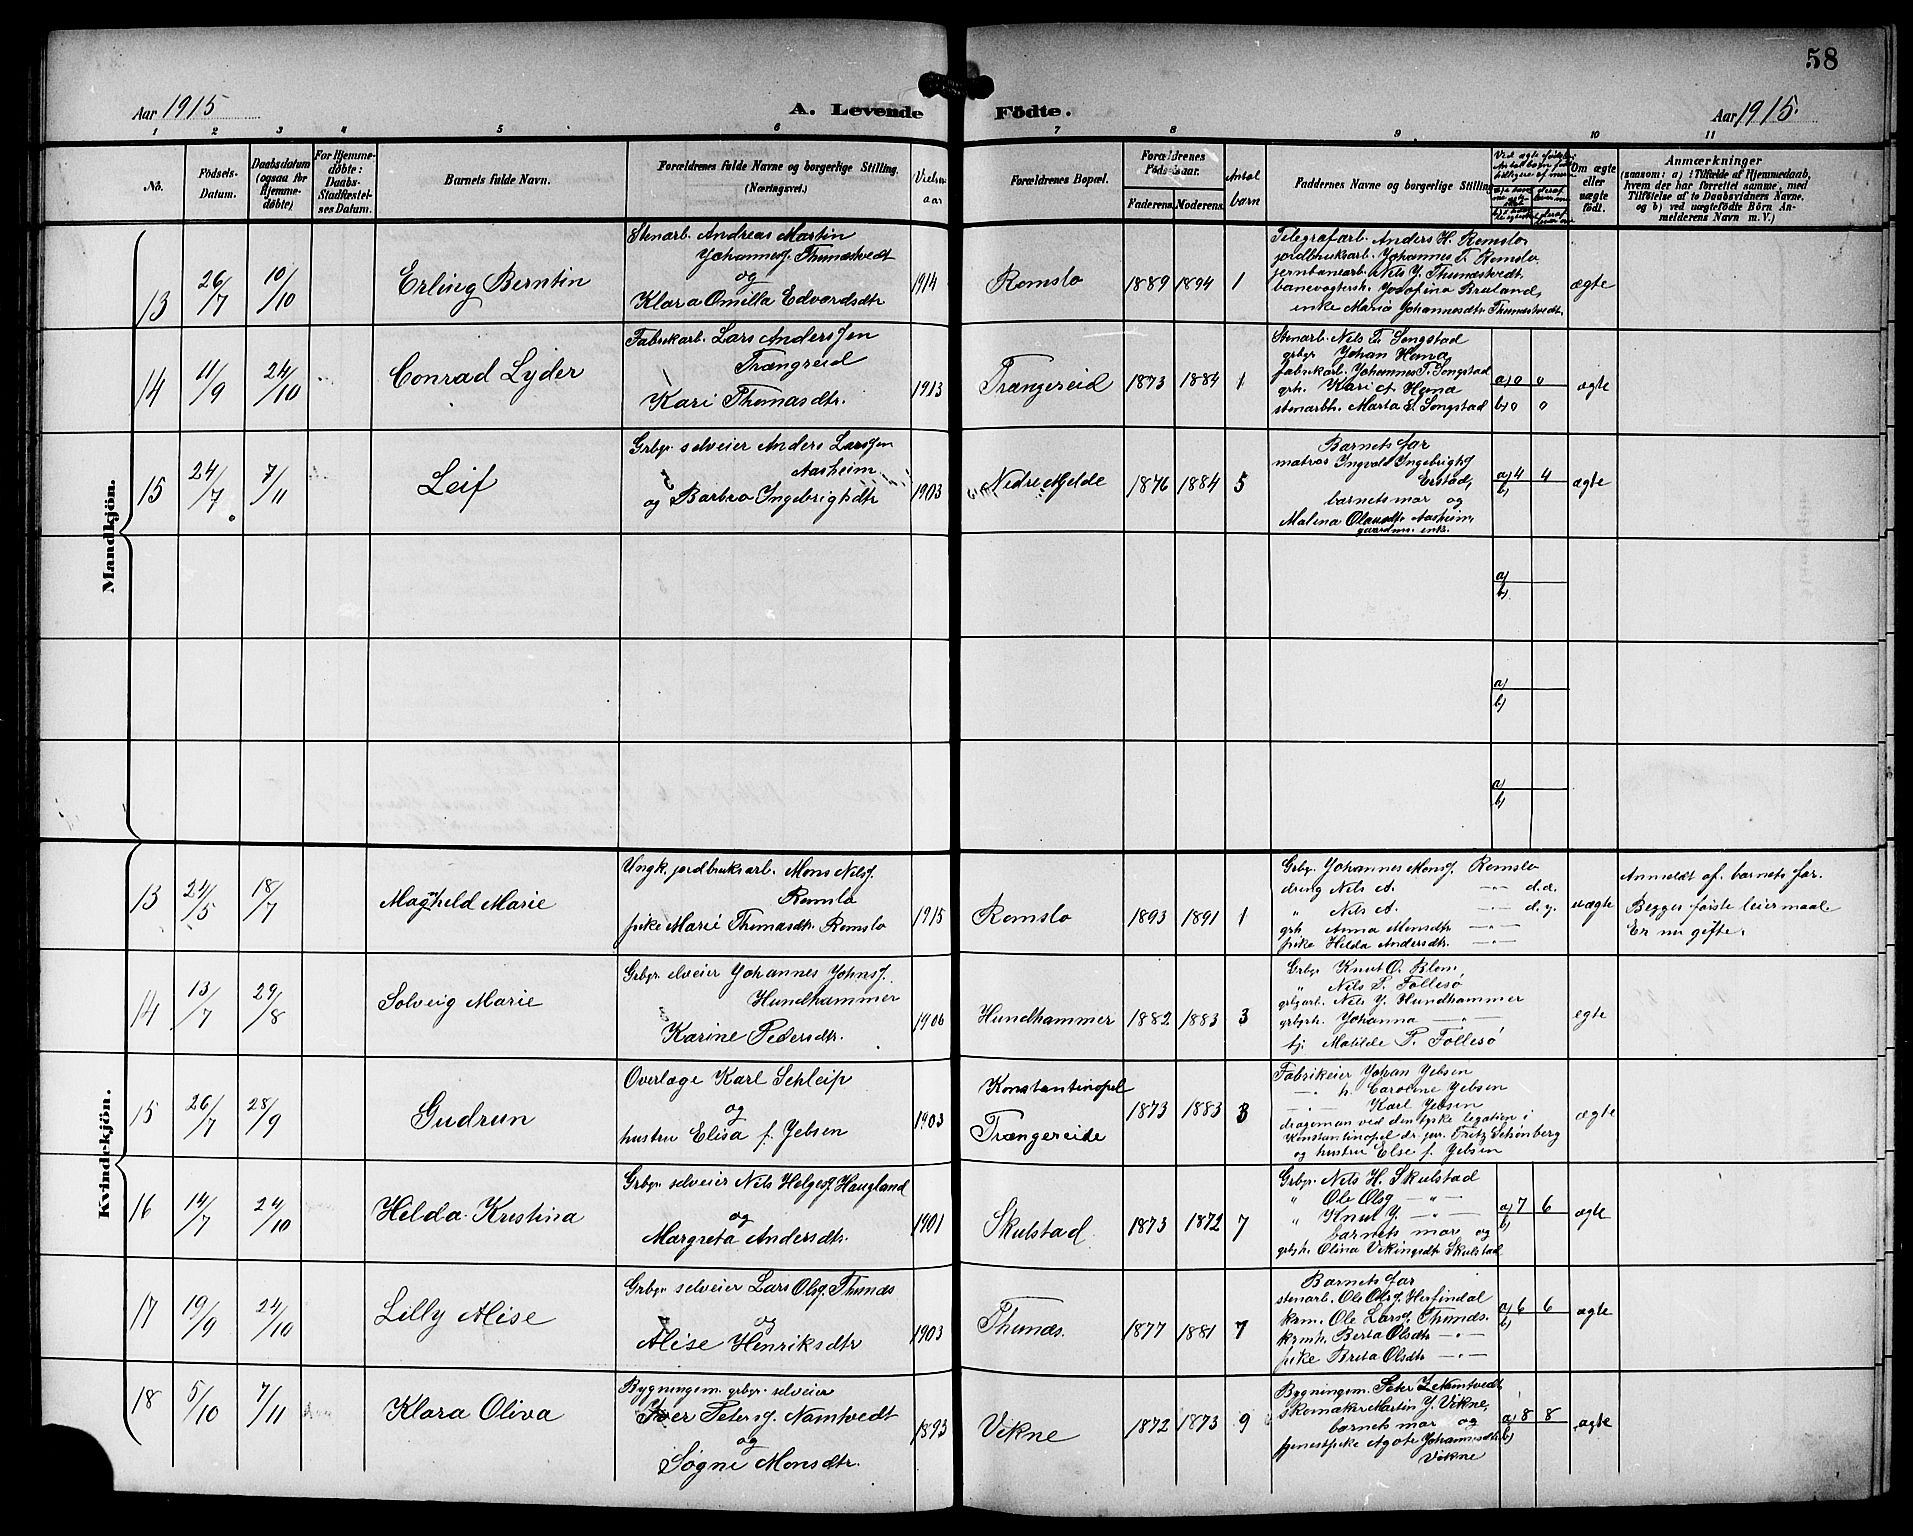 58
Aar 1915
A. Levende Födte.
Aar 1915.
1 2 3 4 5 6 7 8 9 10 11
No.
Födsels-
Datum.
Daabsdatum
(ogsaa for
Hjemme-
døbte)
For Hjemme-
døbte:
Daabs-
Stadfæstel-
ses Datum.
Barnets fulde Navn.
Forældrenes fulde Navne og borgerlige Stilling.
(Næringsvei.)
Vielses-
aar
Forældrenes Bopæl.
Forældrenes
Födselsaar.
Faderens. Moderens.
Antal
barn
Faddernes Navne og borgerlige Stilling
Om ægte
eller
uægte
født.
Anmærkninger
(saasom: a) i Tilfælde af Hjemmedaab,
hvem der har forrettet samme, med
Tilföielse af to Daabsvidners Navne,
og b) ved uægtefödte Börn An-
melderens Navn m. V.)
Mandkjön.
13 26/7 10/10 Erling Berntin
Stenarb. Andreas Martin
Johannesf. Thunestvedt
og
Klara Omilla Edvardsdtr
1914 Romslo 1889 1894 1
Telegrafarb. Anders H. Romslo,
jordbruksarb. Johannes T. Romslo.
jernbanearb. Nils J. Thunestvedt
banevogtersh. Josofina Bruland,
enke Maria Johannesdtr Thunestvedt
ægte
14 11/9 24/10 Conrad Lyder
Fabrikarb. Lars Andersen
Trængreid
Kari Thomasdtr.
1913 Trængereid 1873 1884 1
Stenarb. Nils T. Songstad
grbgr Johan Hana,
fabrikarb. Johannes T. Songstad
grh. Kari A. Hana
stenarbh. Marta E. Songstad
a) 0 0
b) 0 0
ægte
15 24/7 7/11 Leif
Grbgr selveier Anders Larsen
Aasheim
og Barbro Ingebrigtsdtr
1903 Nedre Hjelde 1876 1884 5
Barnets far
matros Ingvald Ingebrigtsf
Erstad,
barnets mor og
Malena Olausdtr Aasheim,
gaardm. enke.
a) 4 4
b)
ægte
a)
b)
a)
b)
a)
b)
Kvindekjön.
13 24/5 18/7 Magnheld Marie
Ungk. jordbruksarb. Mons Nilsf.
Romslo
pike Marie Thomasdtr. Romslo
1915 Romslo 1893 1891 1
Grbgr Johannes Monsf. Romslo
dreng Nils A. —"— d.æ.
" Nils A. —"— d.y.
grh Anna Monsdtr —"—
pike Helda Andersdtr. —"—
uægte
Anmeldt af barnets far.
Begges første leiermaal
Er nu gifte.
14 13/7 29/8 Solveig Marie
Grbgr. elveier Johannes Johnsf.
Hundhammer
Karine Pedersdtr.
1906 Hundhammer 1882 1883 3
Grbgr Knut O. Blom,
" Nils P. Follesø
grbgarb. Nils J. Hundhammer
grbgrh. Johanna —"—
tj. Matilde P. Follesø
egte
15 26/7 28/9 Gudrun
Overlæge Karl Schleip
og
hustru Elisa f. Jebsen
1903
Konstantinopel
Trængereide
1873 1883 3
Fabrikeier Johan Jebsen
—"— h. Caroline Jebsen
—"— Karl Jebsen
drageman ved den tyske legation i
Konstantinopel dr. jur. Fritz Schönberg
og hustru Else f. Jebsen
ægte
16 14/7 24/10 Helda Kristina
Grbgr selveier Nils Helgesf. Haugland
og
Margreta Andersdtr.
1901 Skulstad 1873 1872 7
Grbgr. Nils H. Skulstad
" Ole Olsf —"—
" Knut J. —"—
barnets mor og
grbgrh. Olina Vikingsdtr Skulstad
a) 7 6
b)
ægte
17 19/9 24/10 Lilly Alise
Grbgr selveier Lars Olsf. Thunæs
og
Alise Henriksdtr
1903 Thunæs. 1877 1881 7
Barnets far
stenarb. Ole Olsf. Herfindal
krm. Ole Larsf. Thunæs.
krmh. Berta Olsdtr —"—
pike Brita Olsdtr —"—
a) 6 6
b)
ægte
18 5/10 7/11 Klara Oliva
Bygningsm. grbgr. selveier
Iver Petersf. Namtvedt
og
Søgni Monsdtr.
1893 Vikne 1872 1873 9
Bygningsm. Peter I. Namtvedt
skomaker Martin J. Vikne,
barnets mor og
tjenestpike Agote Johannesdtr
Vikne
a) 8 8
b)
ægte